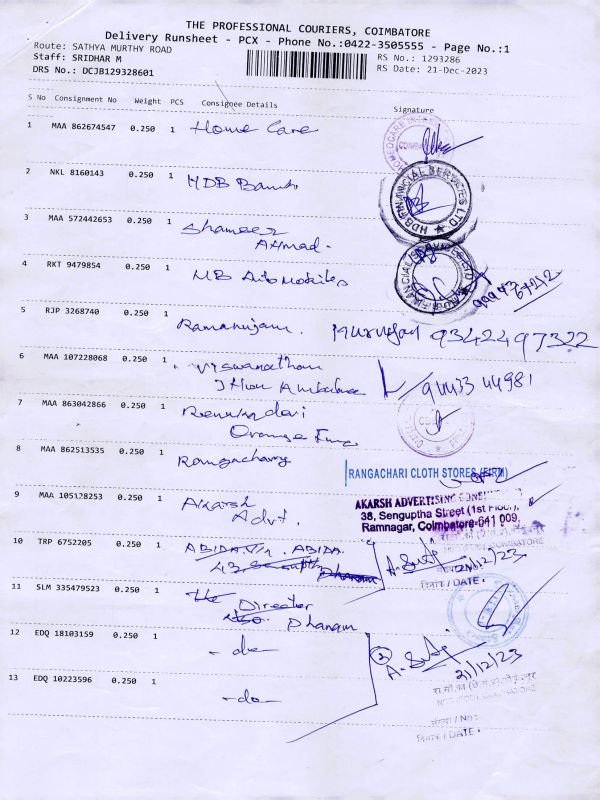 THE PROFESSIONAL COURIERS, COIMBATORE
Delivery Runsheet - PCX - Phone No.:0422-3505555 - Page No.:1
Route: SATHYA MURTHY ROAD
Staff: SRIDHAR M
RS No.: 1293286
DRS No.: DCJB129328601
RS Date: 21-Dec-2023
S No Consignment No Weight PCS Consignee Details Signature
1 MAA 862674547 0.250 1 Home Care
2 NKL 8160143 0.250 1 HDB Bank
HDB FINANCIAL SERVICES LTD
3 MAA 572442653 0.250 1 Shameer
Ahmad.
4 RKT 9479854 0.250 1 MB Automobiles
5 RJP 3268740 0.250 1 Ramanujam. Murugan 9342497322
6 MAA 107228068 0.250 1 Viswanathan
94433 44981
7 MAA 863042866 0.250 1
Orange
8 MAA 862513535 0.250 1 Rangachary
RANGACHARI CLOTH STORES (FIRM)
9 MAA 105128253 0.250 1 Akarsh
Advt.
AKARSH ADVERTISING
38, Senguptha Street (1st Floor),
Ramnagar, Coimbatore-641 009.
10 TRP 6752205 0.250 1 ABIDA ABIDA.
21/12/23
दिनांक / DATE :
11 SLM 335479523 0.250 1 The Director
Dhanam
12 EDQ 18103159 0.250 1 -do-
21/12/23
13 EDQ 10223596 0.250 1 -do-
संख्या / No :
दिनांक / DATE :